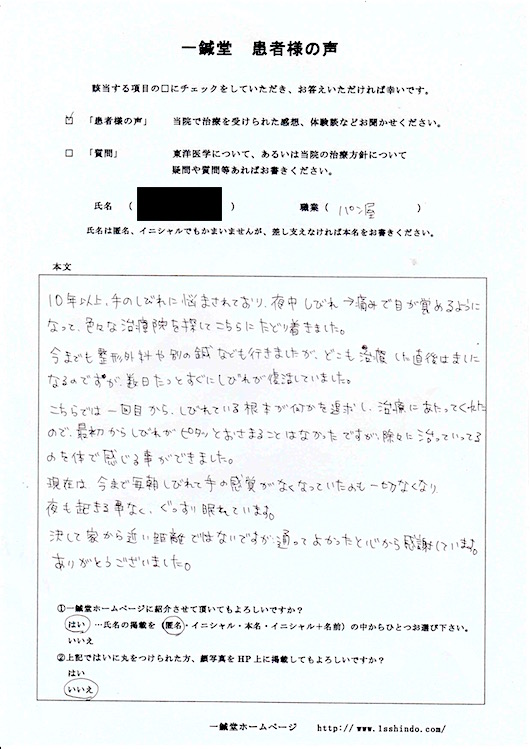 一鍼堂 患者様の声
該当する項目の□にチェックをしていただき、お答えいただければ幸いです。
☑ 「患者様の声」 当院で治療を受けられた感想、体験談などお聞かせください。
□ 「質問」 東洋医学について、あるいは当院の治療方針について
疑問や質問等あればお書きください。
氏名 ( ) 職業 ( パン屋 )
氏名は匿名、イニシャルでもかまいませんが、差し支えなければ本名をお書きください。
本文
10年以上、手のしびれに悩まされており、夜中しびれ→痛みで目が覚めるように
なって、色々な治療院を探してこちらにたどり着きました。
今までも整形外科や別の鍼なども行きましたが、どこも治療した直後はましに
なるのですが、数日たつとすぐにしびれが復活していました。
こちらでは一回目から、しびれている根本が何かを追求し、治療にあたってくれた
ので、最初からしびれがピタッとおさまることはなかったですが、除々に治っていってる
のを体で感じる事ができました。
現在は、今まで毎朝しびれて手の感覚がなくなっていたのも一切なくなり
夜も起きる事なく、ぐっすり眠れています。
決して家から近い距離ではないですが、通ってよかったと心から感謝しています。
ありがとうございました。
①一鍼堂ホームページに紹介させて頂いてもよろしいですか？
はい …氏名の掲載を（匿名・イニシャル・本名・イニシャル＋名前）の中からひとつお選び下さい。
いいえ
②上記ではいに丸をつけられた方、顔写真をHP上に掲載してもよろしいですか？
はい
いいえ
一鍼堂ホームページ http://www.1sshindo.com/